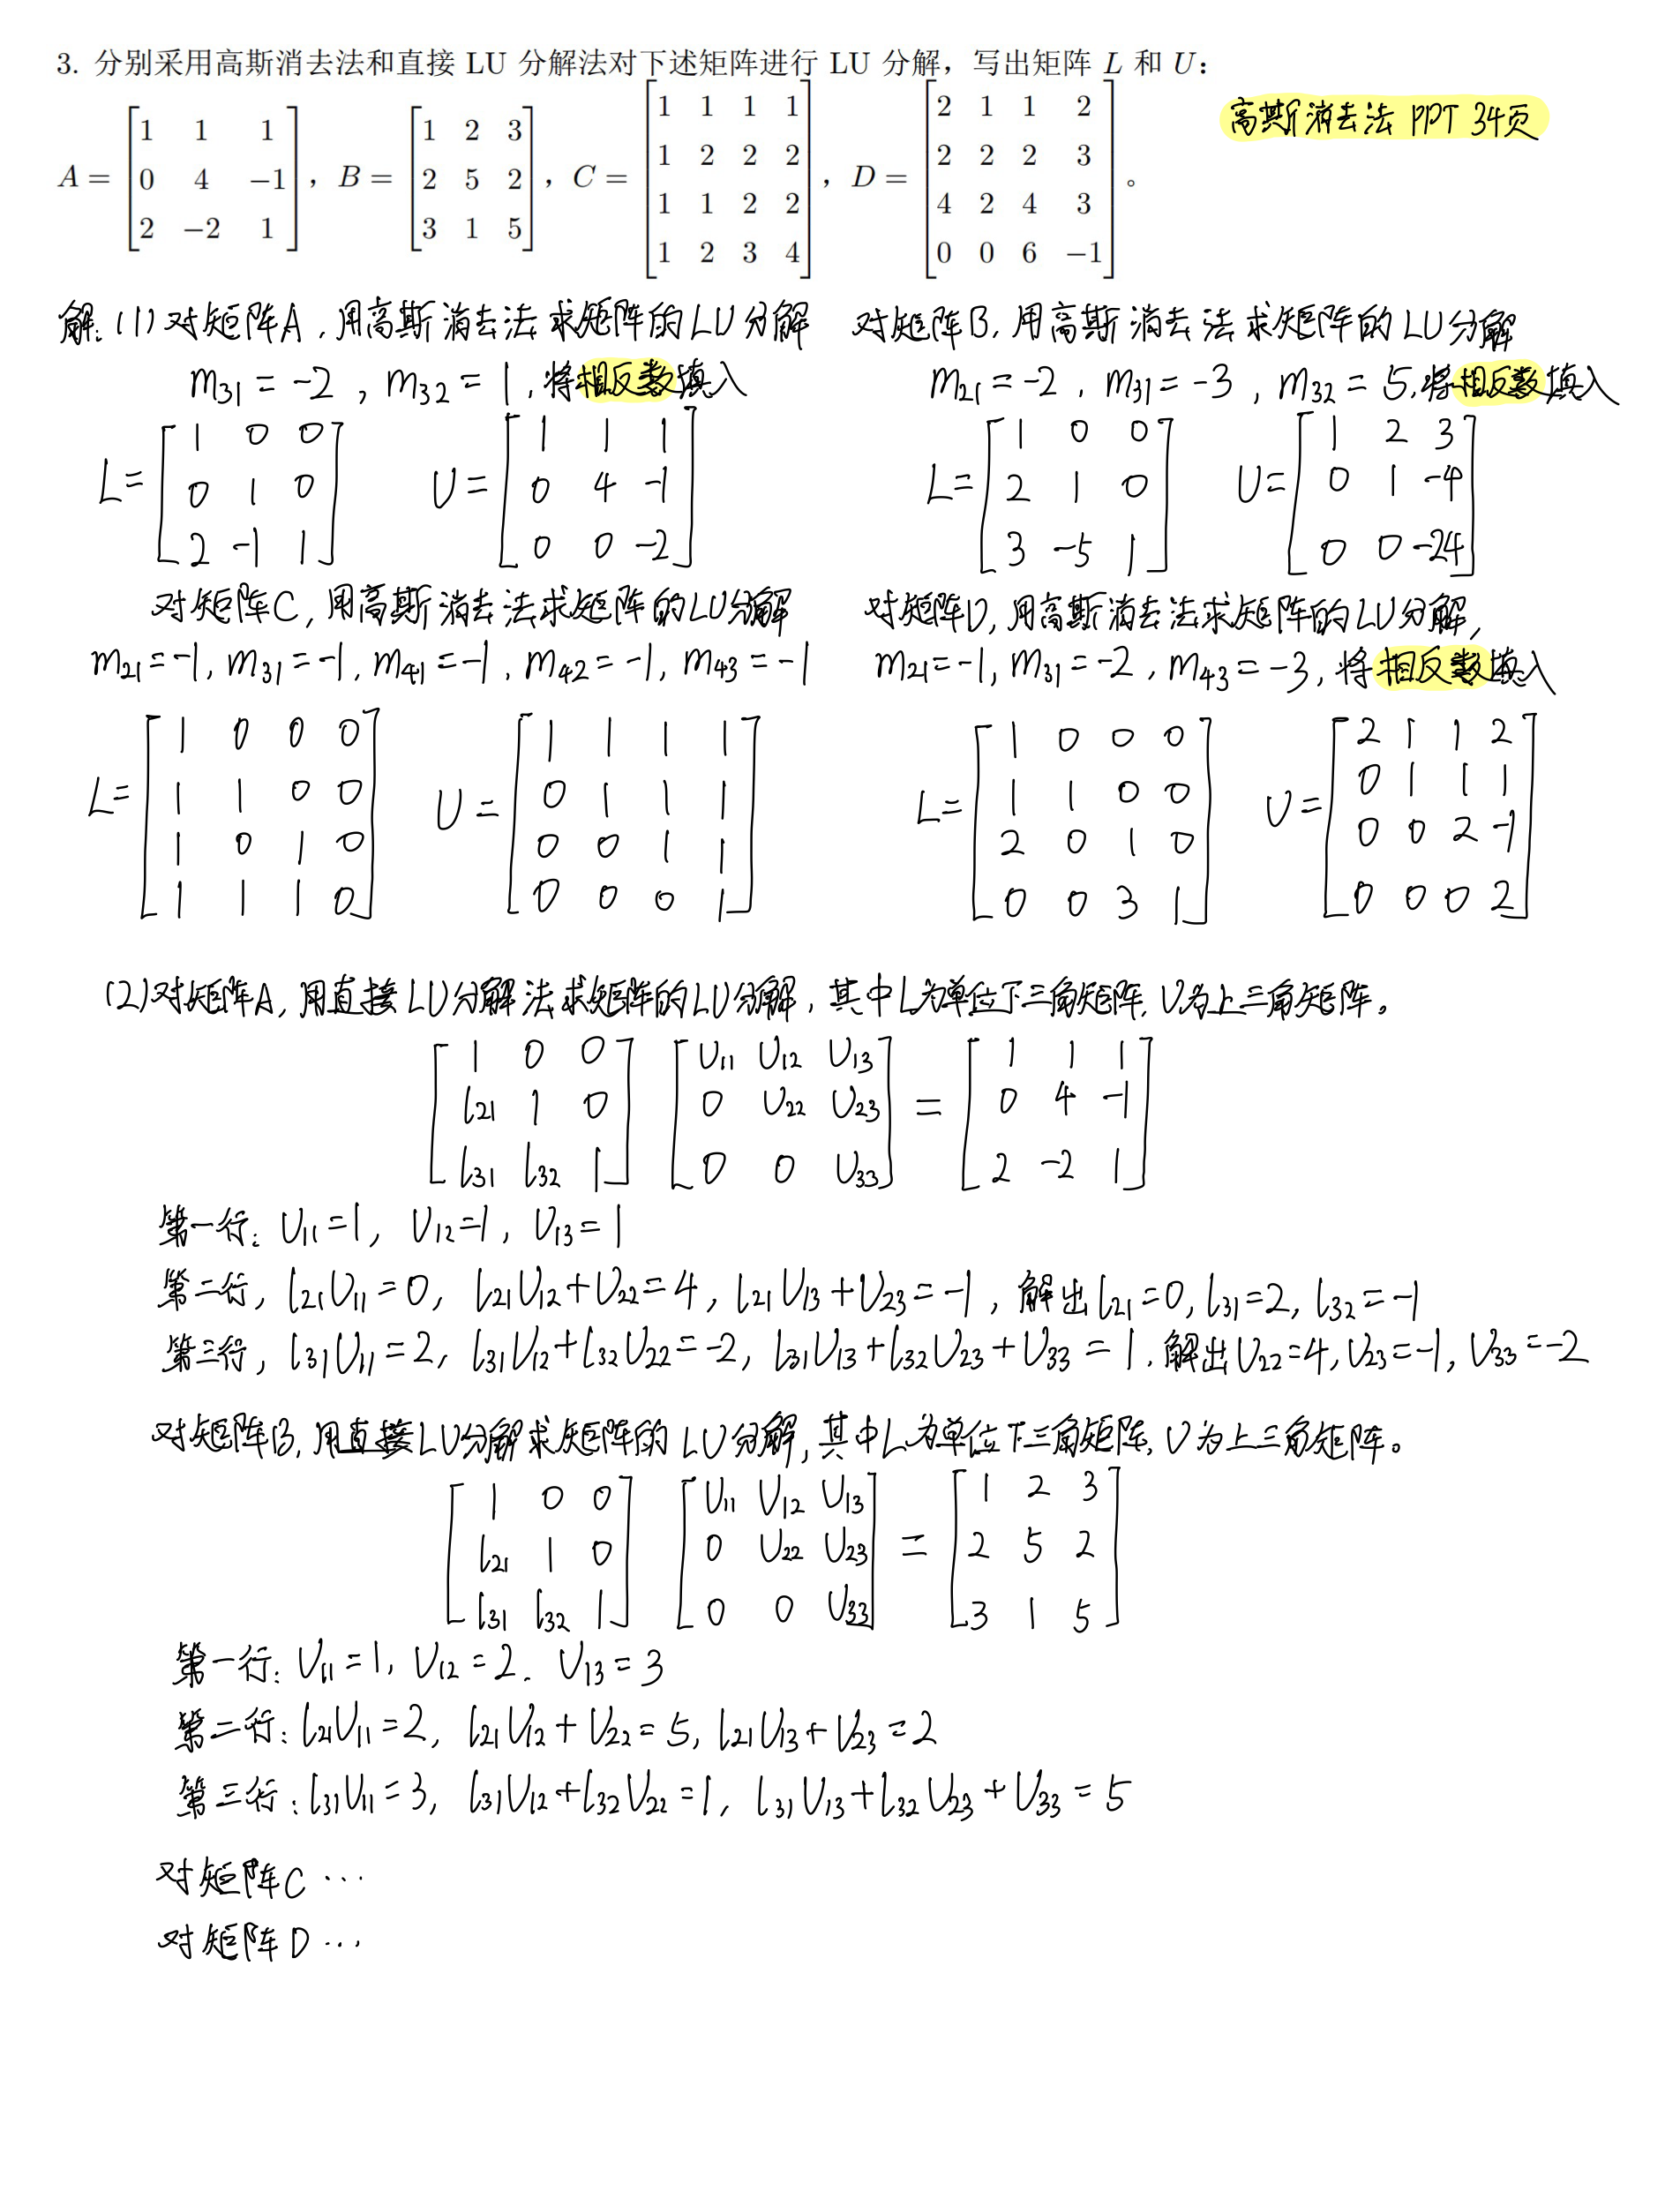 3. 分别采用高斯消去法和直接 LU 分解法对下述矩阵进行 LU 分解，写出矩阵 L 和 U：
A = [1 1 1; 0 4 −1; 2 −2 1]，B = [1 2 3; 2 5 2; 3 1 5]，C = [1 1 1 1; 1 2 2 2; 1 1 2 2; 1 2 3 4]，D = [2 1 1 2; 2 2 2 3; 4 2 4 3; 0 0 6 −1]。
高斯消去法 PPT 34页
解：(1) 对矩阵A，用高斯消去法求矩阵的LU分解
m31 = -2，m32 = 1，将相反数填入
L = [1 0 0; 0 1 0; 2 -1 1] U = [1 1 1; 0 4 -1; 0 0 -2]
对矩阵B，用高斯消去法求矩阵的LU分解
m21 = -2，m31 = -3，m32 = 5，将相反数填入
L = [1 0 0; 2 1 0; 3 -5 1] U = [1 2 3; 0 1 -4; 0 0 -24]
对矩阵C，用高斯消去法求矩阵的LU分解
m21 = -1, m31 = -1, m41 = -1, m42 = -1, m43 = -1
L = [1 0 0 0; 1 1 0 0; 1 0 1 0; 1 1 1 0] U = [1 1 1 1; 0 1 1 1; 0 0 1 1; 0 0 0 1]
对矩阵D，用高斯消去法求矩阵的LU分解，
m21 = -1, m31 = -2, m43 = -3, 将相反数填入
L = [1 0 0 0; 1 1 0 0; 2 0 1 0; 0 0 3 1] U = [2 1 1 2; 0 1 1 1; 0 0 2 -1; 0 0 0 2]
(2) 对矩阵A，用直接LU分解法求矩阵的LU分解，其中L为单位下三角矩阵，U为上三角矩阵。
[1 0 0; l21 1 0; l31 l32 1] [U11 U12 U13; 0 U22 U23; 0 0 U33] = [1 1 1; 0 4 -1; 2 -2 1]
第一行：U11 = 1，U12 = 1，U13 = 1
第二行，l21U11 = 0，l21U12 + U22 = 4，l21U13 + U23 = -1，解出 l21 = 0, l31 = 2, l32 = -1
第三行，l31U11 = 2，l31U12 + l32U22 = -2，l31U13 + l32U23 + U33 = 1，解出 U22 = 4, U23 = -1, U33 = -2
对矩阵B，用直接LU分解求矩阵的LU分解，其中L为单位下三角矩阵，U为上三角矩阵。
[1 0 0; l21 1 0; l31 l32 1] [U11 U12 U13; 0 U22 U23; 0 0 U33] = [1 2 3; 2 5 2; 3 1 5]
第一行：U11 = 1, U12 = 2, U13 = 3
第二行：l21U11 = 2，l21U12 + U22 = 5, l21U13 + U23 = 2
第三行：l31U11 = 3，l31U12 + l32U22 = 1，l31U13 + l32U23 + U33 = 5
对矩阵C …
对矩阵D …